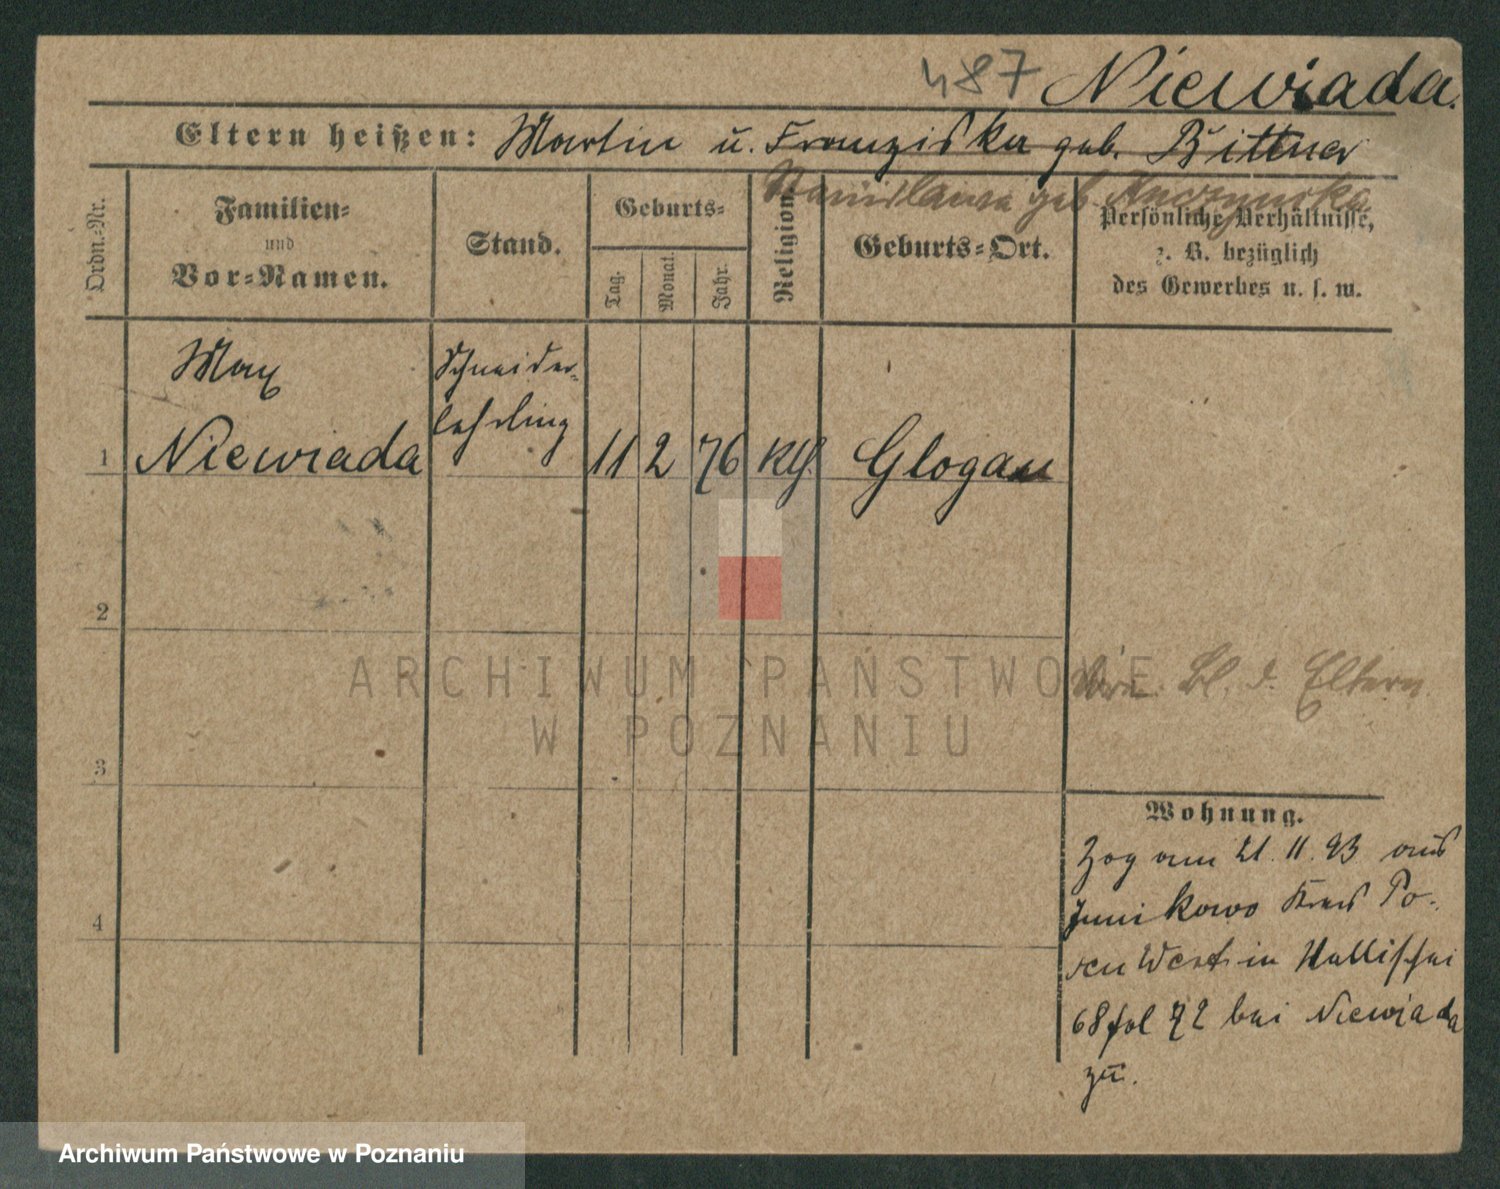 487 Niewiada.
Eltern heißen: Martin u. Franziska geb. Bittner
Stanislawa geb.
Ordn.-Nr.
Familien-
und
Vor-Namen.
Stand.
Geburts-
Tag.
Monat.
Jahr.
Religion
Geburts-Ort.
Persönliche Verhältnisse,
z. B. bezüglich
des Gewerbes u. s. w.
Max
Schneider-
lehrling
1 Niewiada 11 2 76 kth. Glogau
2
ARCHIWUM PAŃSTWOWE
W POZNANIU
Bl. d. Eltern
3
Wohnung.
Zog am 21.11.93 aus
Junikowo Kreis Po-
sen West in Wallischei
68 fol 72 bei Niewiada
zu.
4
Archiwum Państwowe w Poznaniu